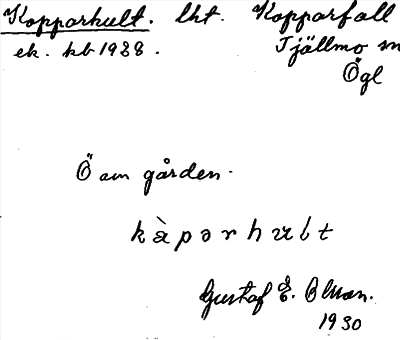 Kopparhult. lht. Kopparfall
ek. kb 1938. Tjällmo sn
Ögl
Ö om gården.
kàpərhult
Gustaf E. Olson.
1930